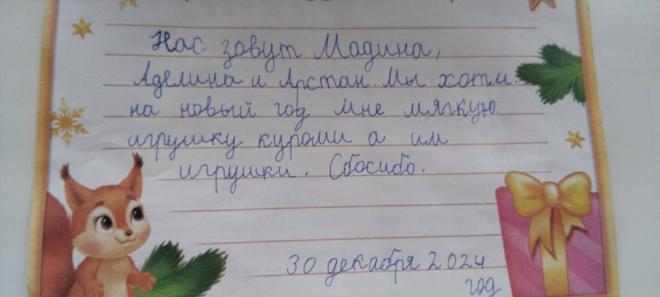 Нас зовут Мадина,
Аделина и Арстан. Мы хотм.
на новый год мне мягкую
игрушку куроми а им
игрушки. Сбосибо.
30 декабря 2024
год